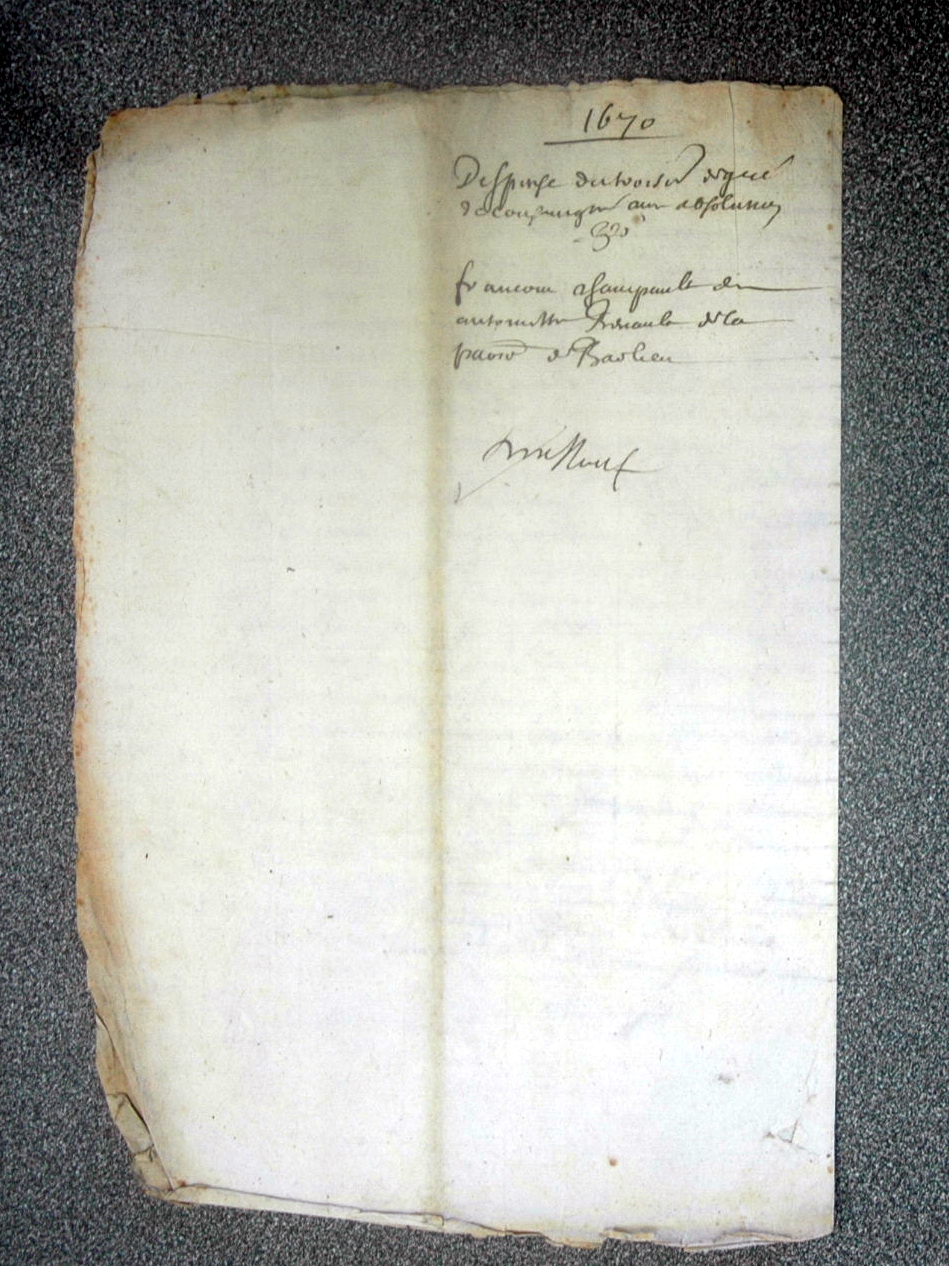 1670
Dispense du troisie degré
de consanguité avec absolution
francois champault et
antoinette Renault de la
paroisse de Barlieu